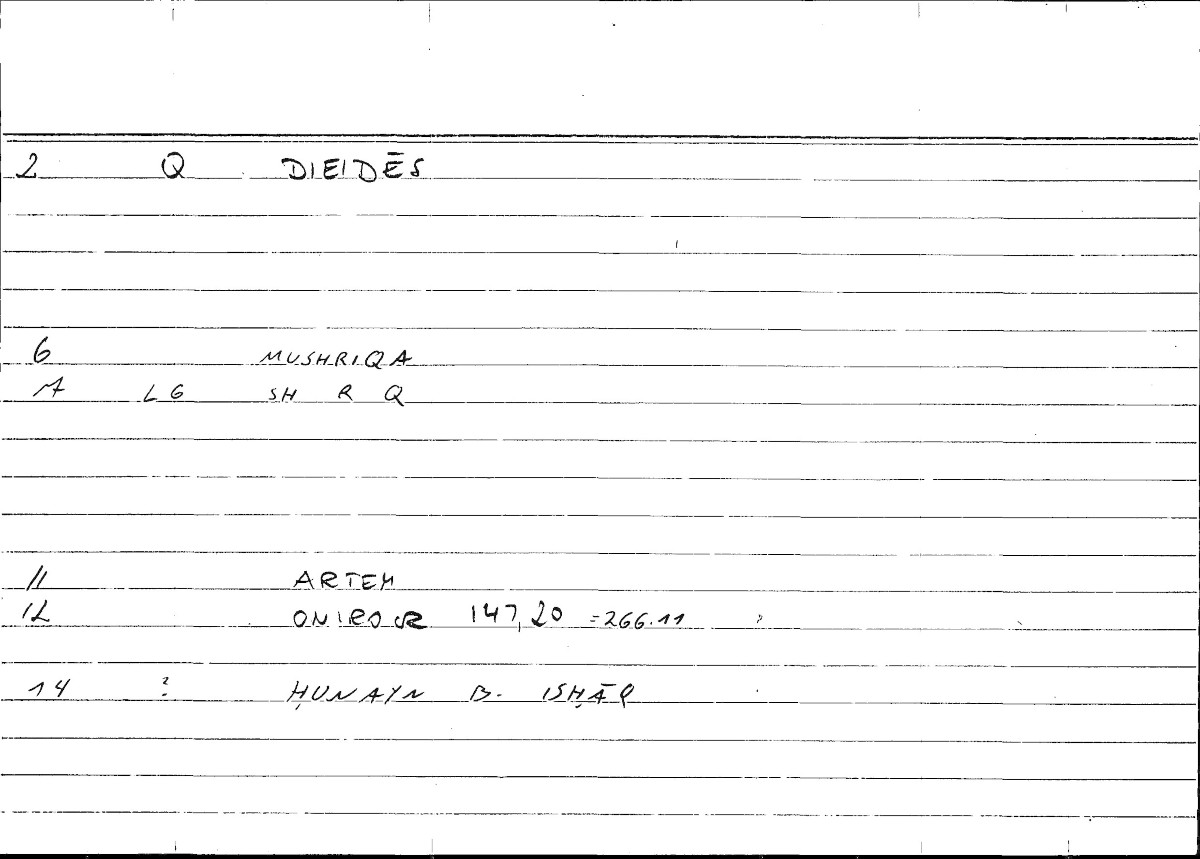 2 Q DIEIDĒS
6 MUSHRIQA
7 LG SH R Q
11 ARTEM
12 ONIROCR 147,20 =266.11
14 ? ḤUNAYN B. ISḤĀQ